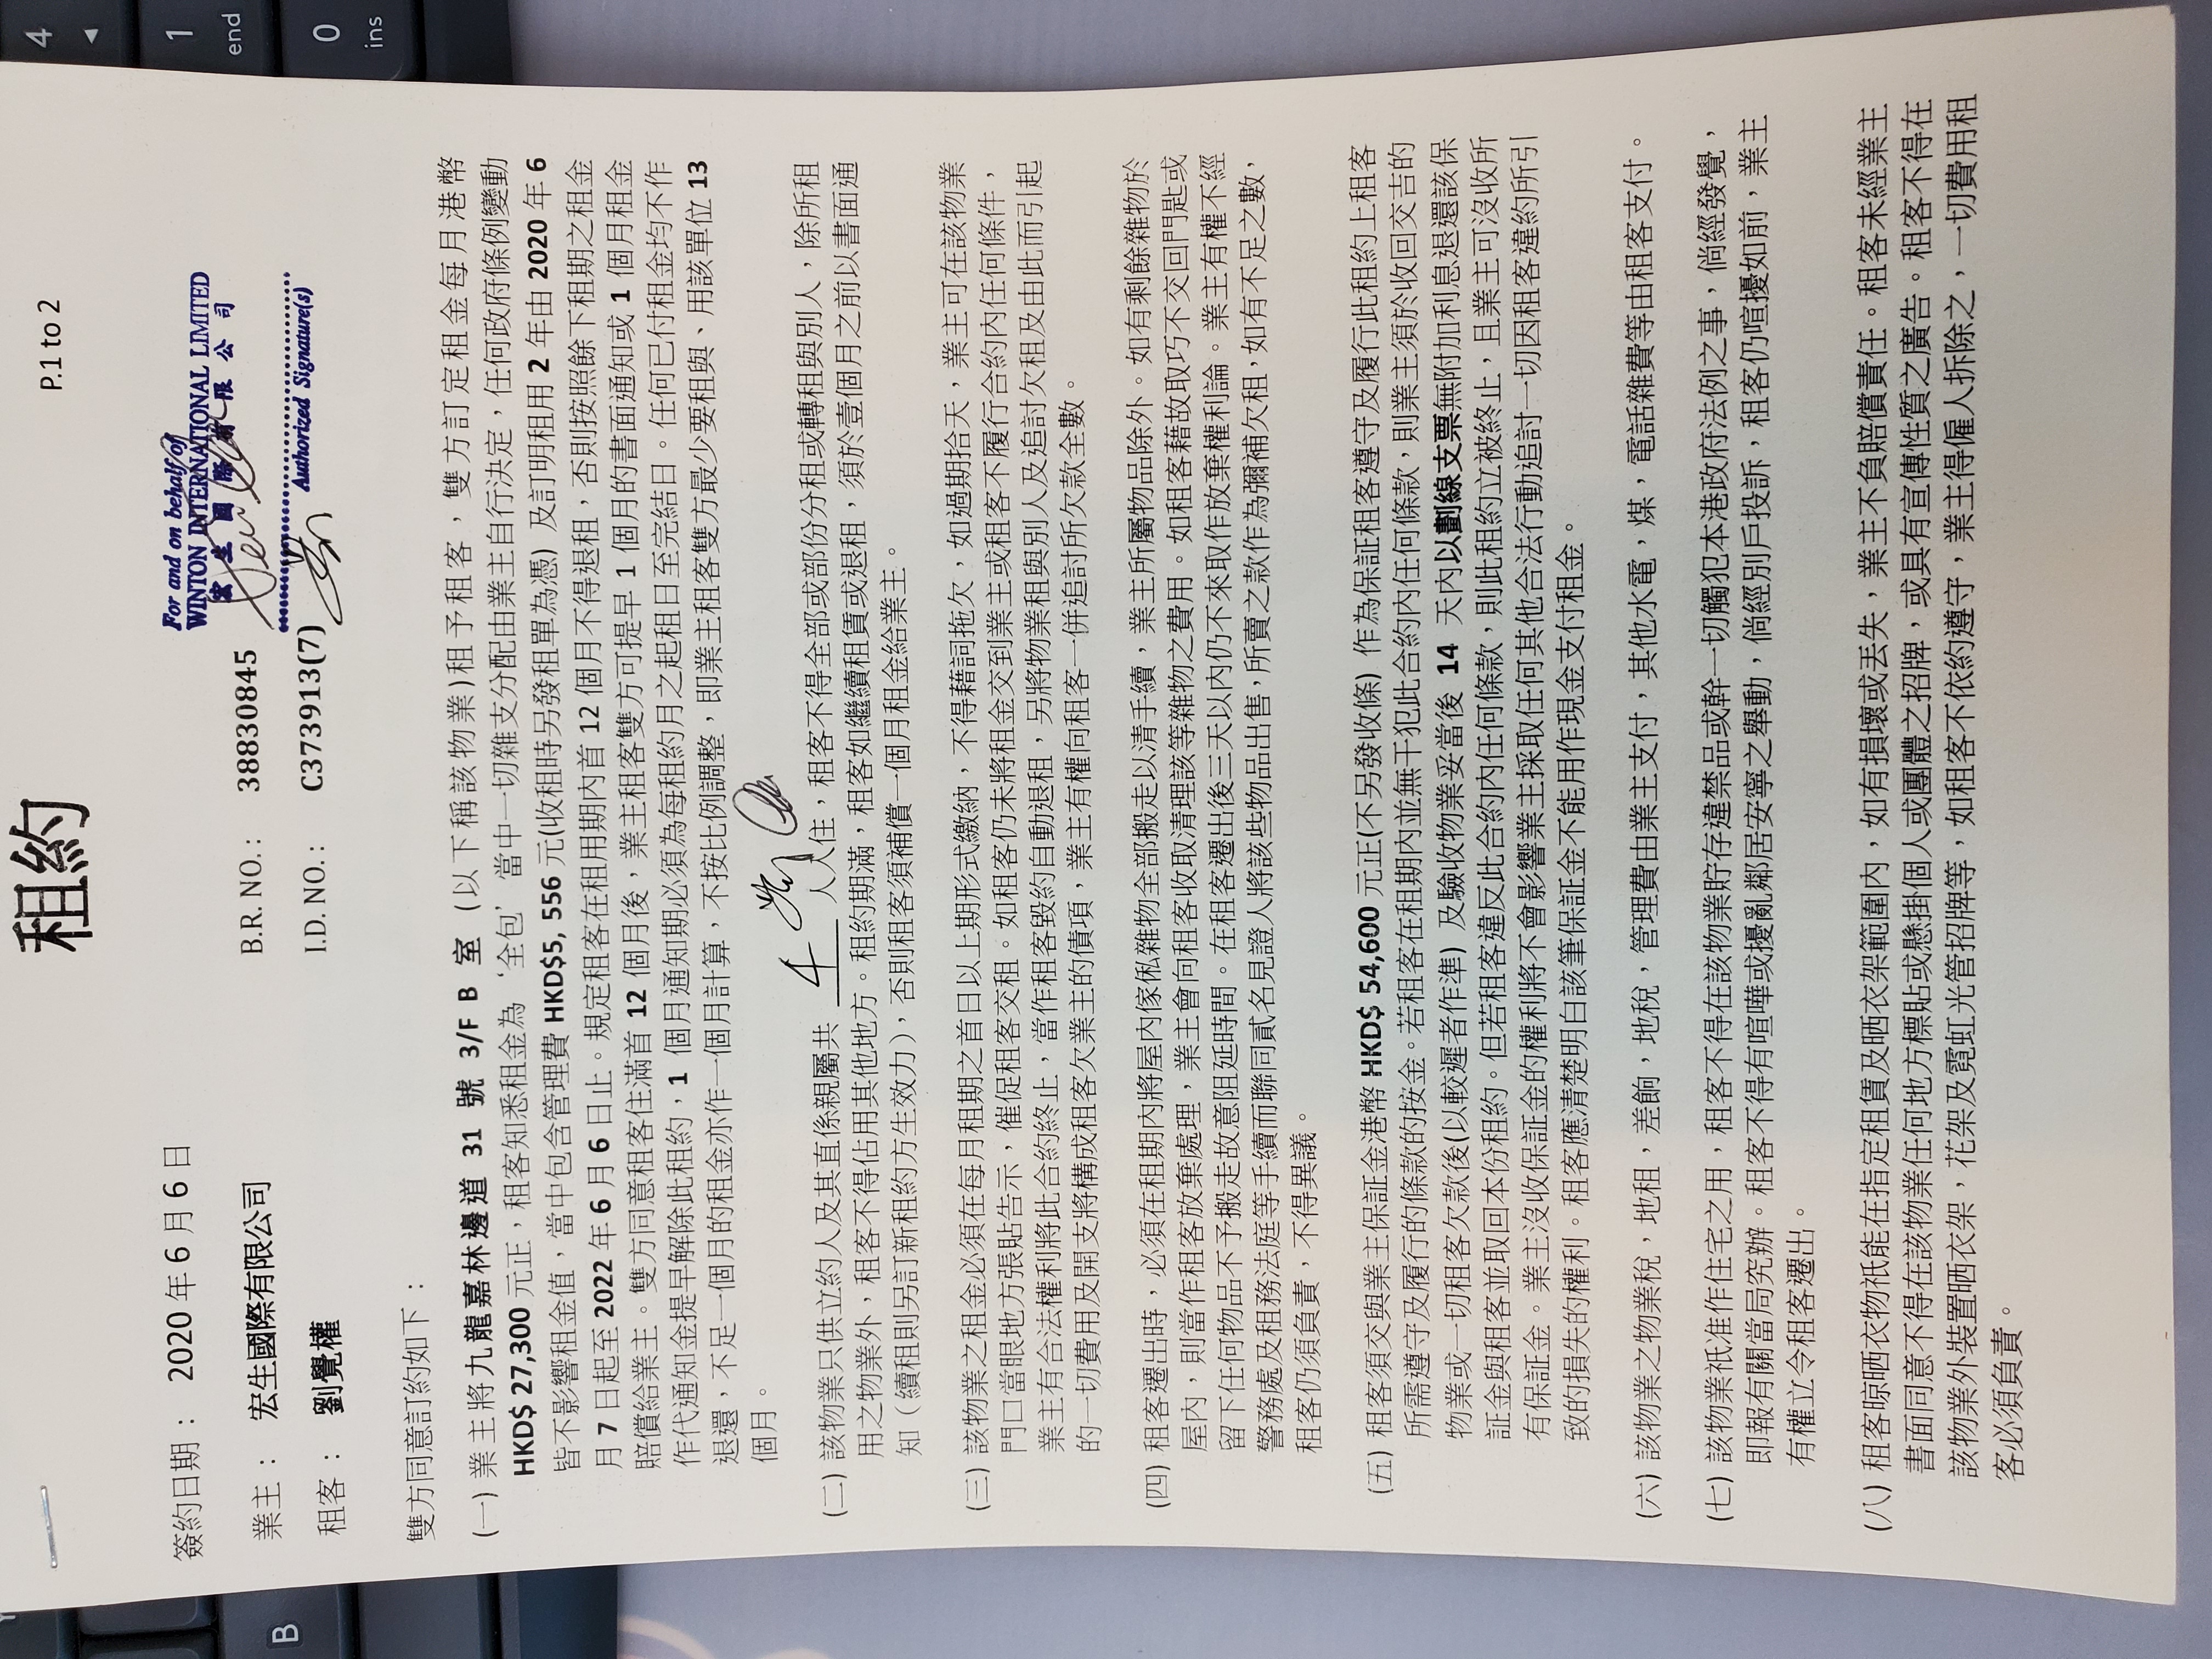 租約
P.1 to 2
簽約日期： 2020 年 6 月 6 日
For and on behalf of
WINTON INTERNATIONAL LIMITED
宏生國際有限公司
業主： 宏生國際有限公司 B.R. NO.： 38830845
Authorized Signature(s)
租客： 劉覺權 I.D. NO.： C373913(7)
雙方同意訂約如下：
(一) 業主將九龍嘉林邊道 31 號 3/F B 室 (以下稱該物業)租予租客，雙方訂定租金每月港幣
HKD$ 27,300 元正，租客知悉租金為‘全包’當中一切雜支分配由業主自行決定，任何政府條例變動
皆不影響租金值，當中包含管理費 HKD$5, 556 元(收租時另發租單為憑) 及訂明租用 2 年由 2020 年 6
月 7 日起至 2022 年 6 月 6 日止。規定租客在租用期內首 12 個月不得退租，否則按照餘下租期之租金
賠償給業主。雙方同意租客住滿首 12 個月後，業主租客雙方可提早 1 個月的書面通知或 1 個月租金
作代通知金提早解除此租約，1 個月通知期必須為每租約月之起租日至完結日。任何已付租金均不作
退還，不足一個月的租金亦作一個月計算，不按比例調整，即業主租客雙方最少要租與、用該單位 13
個月。
(二) 該物業只供立約人及其直係親屬共 4 人入住，租客不得全部或部份分租或轉租與別人，除所租
用之物業外，租客不得佔用其他地方。租約期滿，租客如繼續租賃或退租，須於壹個月之前以書面通
知（續租則另訂新租約方生效力），否則租客須補償一個月租金給業主。
(三) 該物業之租金必須在每月租期之首日以上期形式繳納，不得藉詞拖欠，如過期拾天，業主可在該物業
門口當眼地方張貼告示，催促租客交租。如租客仍未將租金交到業主或租客不履行合約內任何條件，
業主有合法權利將此合約終止，當作租客毀約自動退租，另將物業租與別人及追討欠租及由此而引起
的一切費用及開支將構成租客欠業主的債項，業主有權向租客一併追討所欠款全數。
(四) 租客遷出時，必須在租期內將屋內傢俬雜物全部搬走以清手續，業主所屬物品除外。如有剩餘雜物於
屋內，則當作租客放棄處理，業主會向租客收取清理該等雜物之費用。如租客藉故取巧不交回門匙或
留下任何物品不予搬走故意阻延時間。在租客遷出後三天以內仍不來取作放棄權利論。業主有權不經
警務處及租務法庭等手續而聯同貳名見證人將該些物品出售，所賣之款作為彌補欠租，如有不足之數，
租客仍須負責，不得異議。
(五) 租客須交與業主保証金港幣 HKD$ 54,600 元正(不另發收條) 作為保証租客遵守及履行此租約上租客
所需遵守及履行的條款的按金。若租客在租期內並無干犯此合約內任何條款，則業主須於收回交吉的
物業或一切租客欠款後(以較遲者作準) 及驗收物業妥當後 14 天內以劃線支票無附加利息退還該保
証金與租客並取回本份租約。但若租客違反此合約內任何條款，則此租約立被終止，且業主可沒收所
有保証金。業主沒收保証金的權利將不會影響業主採取任何其他合法行動追討一切因租客違約所引
致的損失的權利。租客應清楚明白該筆保証金不能用作現金支付租金。
(六) 該物業之物業稅，地租，差餉，地稅，管理費由業主支付，其他水電，煤，電話雜費等由租客支付。
(七) 該物業祇准作住宅之用，租客不得在該物業貯存違禁品或幹一切觸犯本港政府法例之事，倘經發覺，
即報有關當局究辦。租客不得有喧嘩或擾亂鄰居安寧之舉動，倘經別戶投訴，租客仍喧擾如前，業主
有權立令租客遷出。
(八) 租客晾晒衣物祇能在指定租賃及晒衣架範圍內，如有損壞或丟失，業主不負賠償責任。租客未經業主
書面同意不得在該物業任何地方標貼或懸掛個人或團體之招牌，或具有宣傳性質之廣告。租客不得在
該物業外裝置晒衣架，花架及霓虹光管招牌等，如租客不依約遵守，業主得僱人拆除之，一切費用租
客必須負責。
4
1
end
0
ins
B